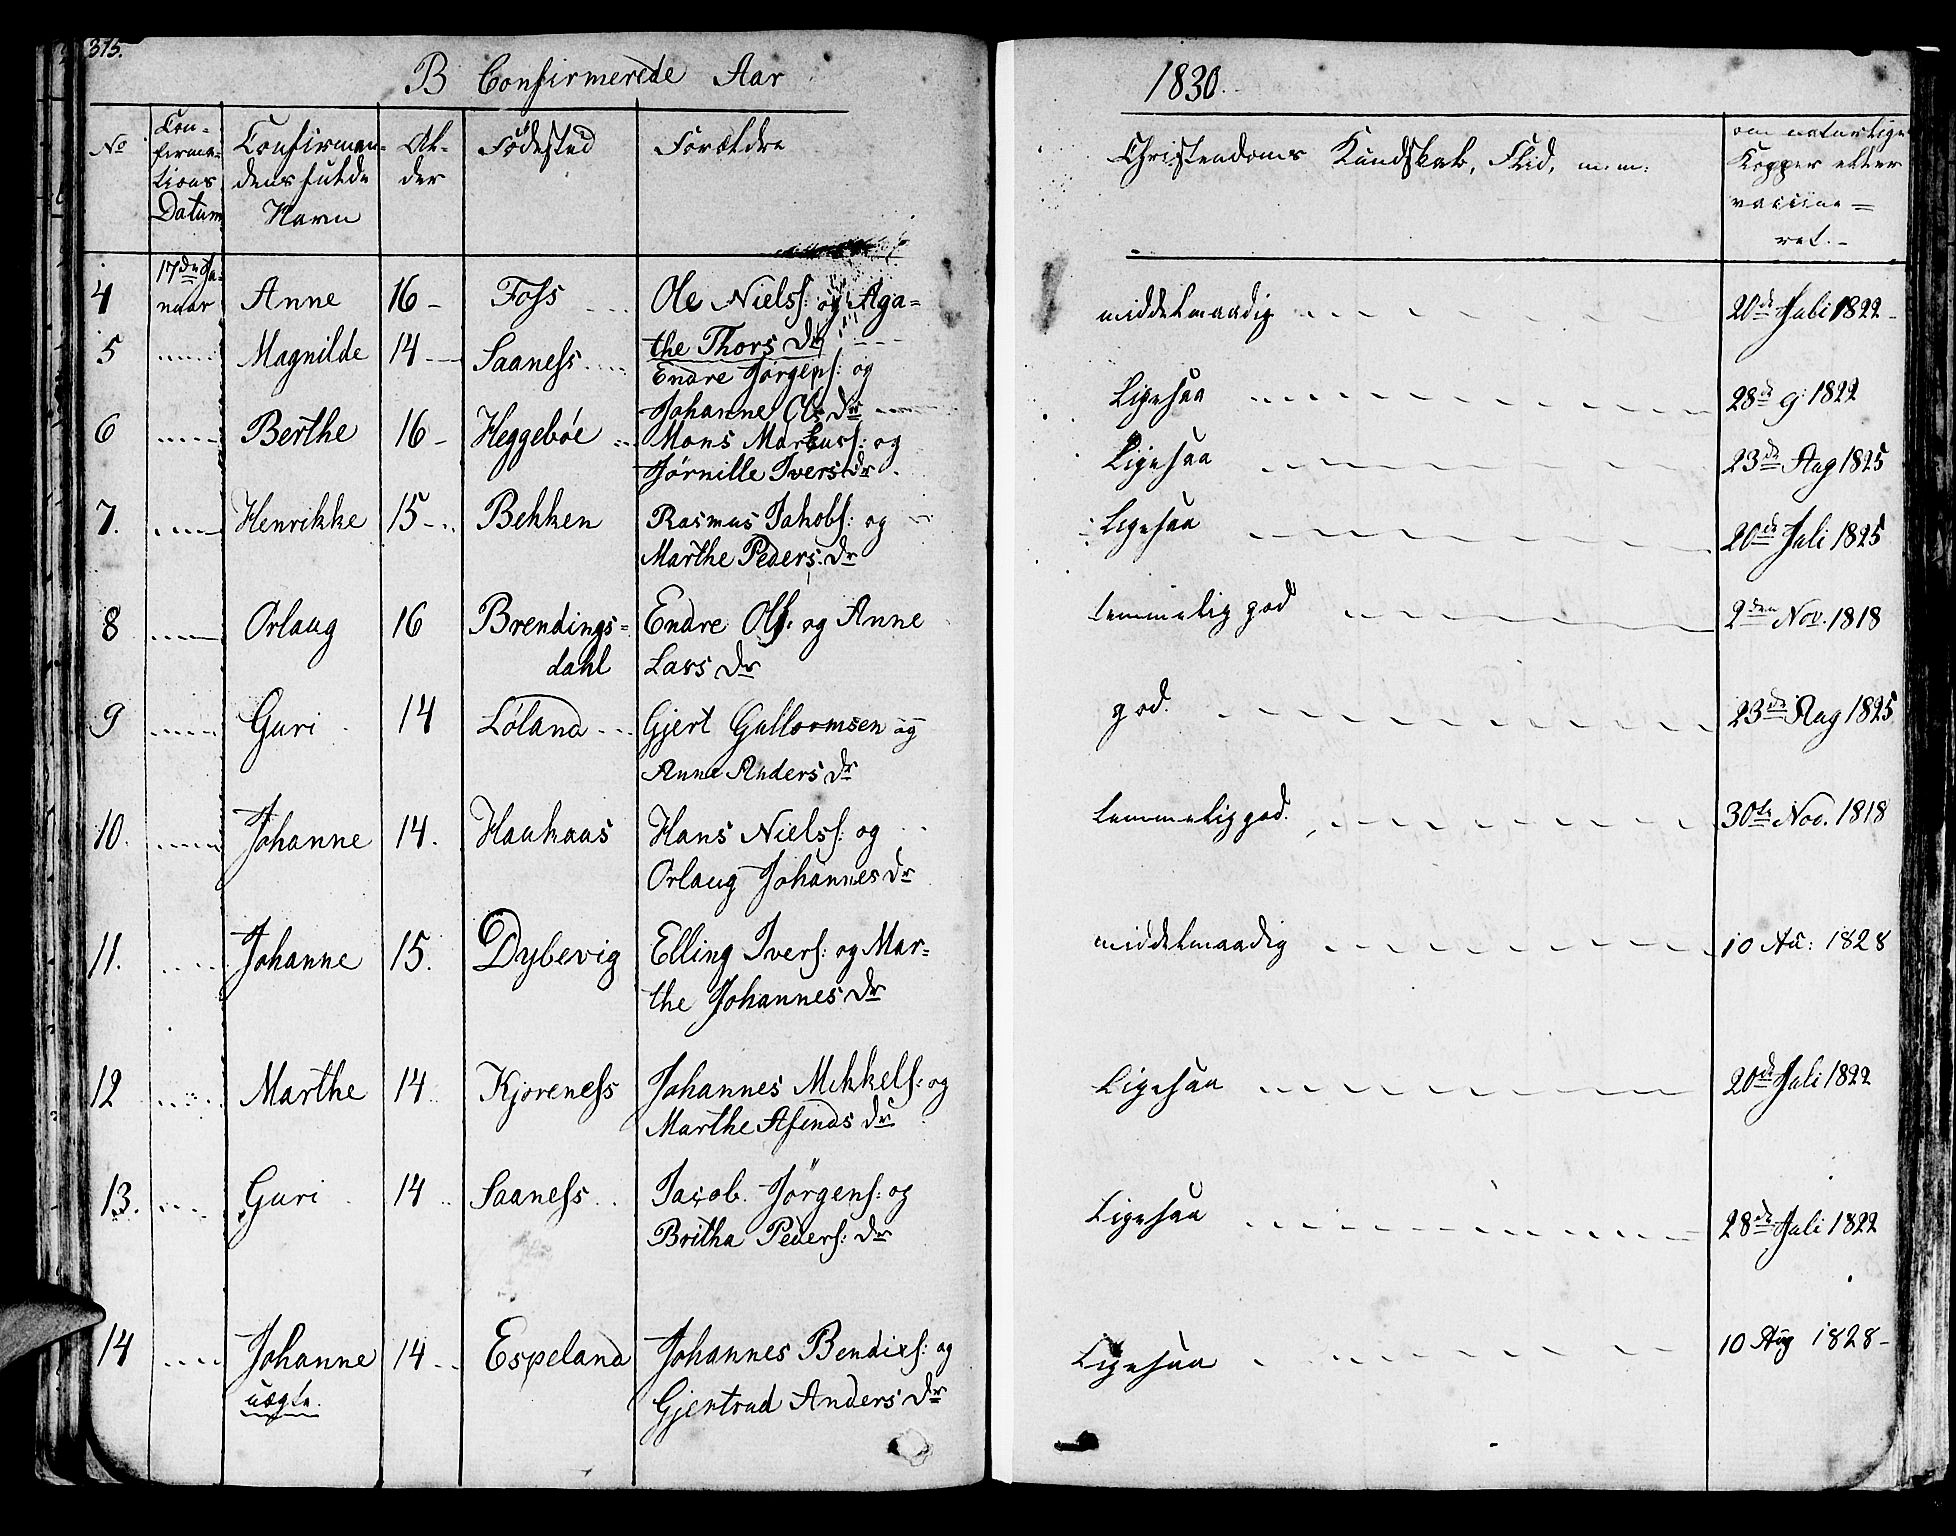 375.
B Confirmerede Aar 1830.
No Con-firma-tions Datum Confirman-dens fulde Navn Al-der Födested Forældre Christendoms Kundskab, Flid, m: m: om naturlige Kopper eller vaccine=ret.-
4 17de Ja-nuar Anne 16- Foss Ole Niels: og Aga= middelmaadig 20de Juli 1822-
the Thors Dr
5 Magnilde 14- Saaness Endre Jörgens: og Ligesaa 28de 9: 1822
Johanne Ols Dr
6 Berthe 16- Heggeböe Mons Markuss: og Ligesaa 23de Aug 1825
Jörnille Ivers dr
7. Henrikke 15- Bekken Rasmus Jakobs: og Ligesaa 20de Juli 1825
Marthe Peders: Dr
8 Orlaug 16 Brendings= Endre Ols: og Anne temmelig god 2den Nov. 1818
dahl Lars Dr
9 Guri 14 Löland Gjert Gulloormsen og god. 23de Aug 1825
Anne Anders Dr
10. Johanne 14. Haukaas Hans Niels: og temmelig god. 30te Nov. 1818
Orlaug Johannes Dr
11. Johanne 15. Dybevig Elling Ivers: og Mar= middelmaadig 10 Au: 1828
the Johannes Dr
12 Marthe 14 Kjoreness Johannes Mikkels: og Ligesaa 20de Juli 1822
Marthe Afinds Dr
13. Guri 14 Saaness Jacob. Jörgens: og Ligesaa 28de Juli 1822
Britha Peders: Dr
14 Johanne 14 Espeland Johannes Bendixs: og Ligesaa 10 Aug 1828-
uægte. Gjertrud Anders Dr